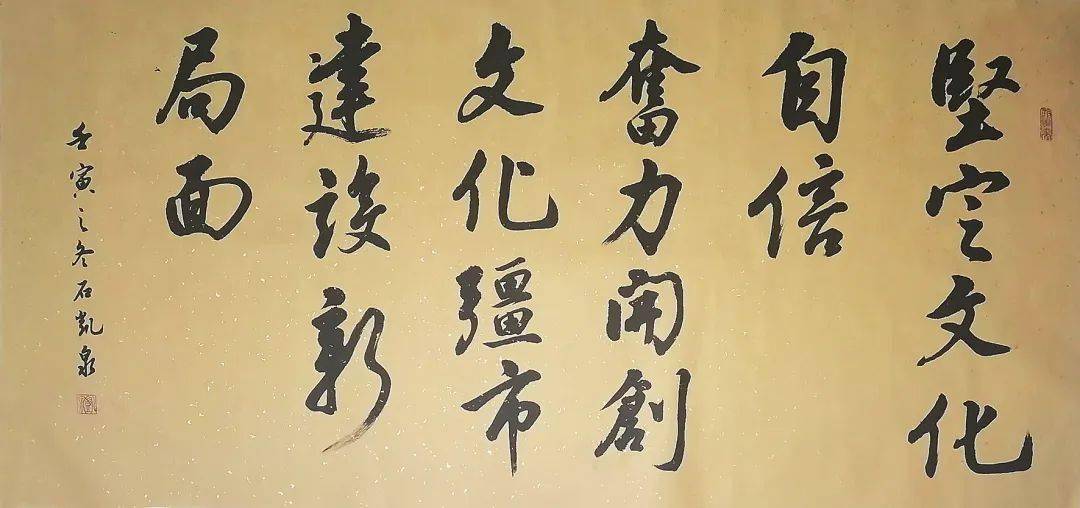 堅定文化
自信
奮力開創
文化疆市
建設新
局面
壬寅之冬石凱泉